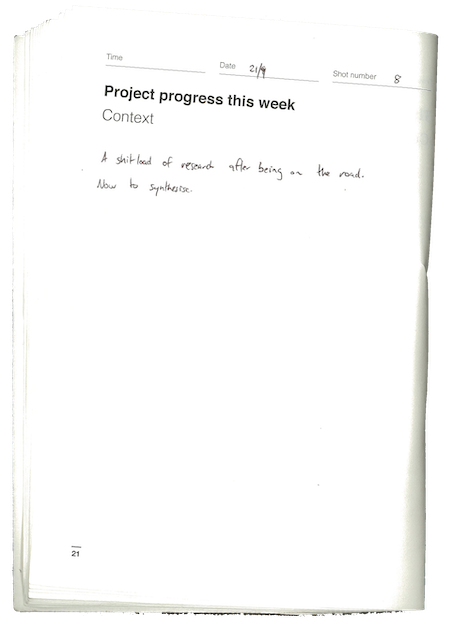 Time
Date 21/9
Shot number 8
Project progress this week
Context
A shitload of research after being on the road.
Now to synthesise.
21